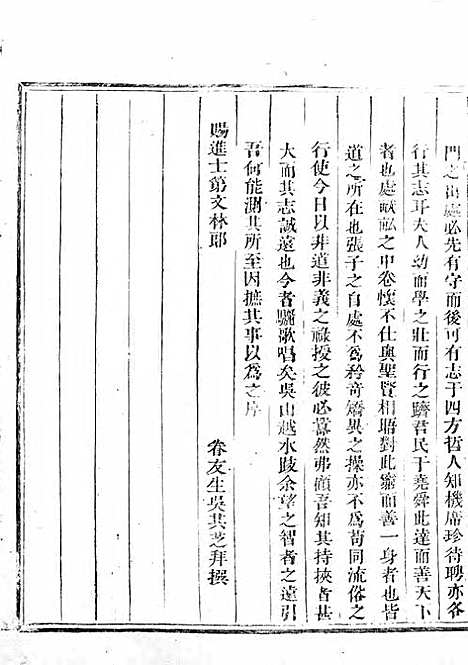 門之出處必先有守而後可有志于四方哲人知機席珍待聘亦各
行其志耳夫人幼而學之壯而行之躋君民于堯舜此達而善天下
者也處畎畝之中卷懷不仕與聖賢相晤對此窮而善一身者也皆
道之所在也張子之自處不為矜奇矯異之操亦不為苟同流俗之
行使今日以非道非義之祿授之彼必囂然弗顧吾知其持挾者甚
大而其志誠遠也今者驪歌唱矣吳山越水歧余望之智者之遠引
吾何能測其所至因摭其事以為之序
賜進士第文林郎
眷友生吳其芝拜撰